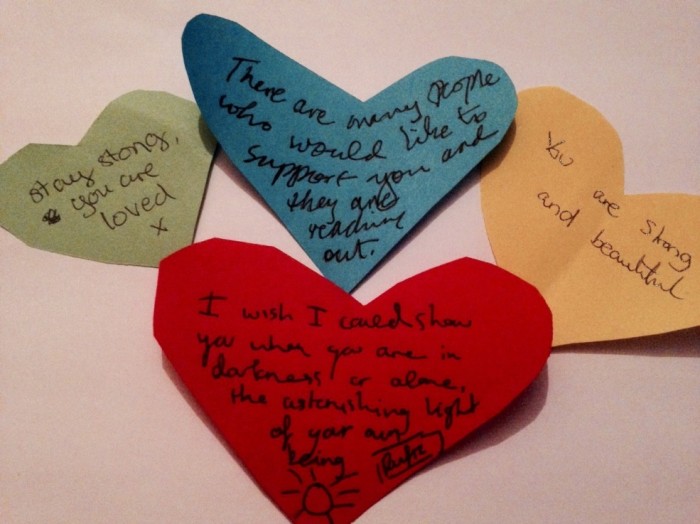 stay stong,
you are
loved
x
There are many people
who would like to
support you and
they are
reaching
out.
You are strong
and beautiful
I wish I could show
you when you are in
darkness or alone,
the astonishing light
of your own
being